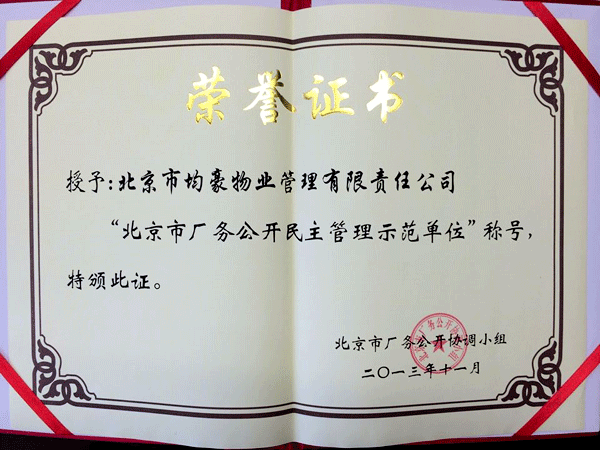 荣誉证书
授予:北京市均豪物业管理有限责任公司
“北京市厂务公开民主管理示范单位”称号，
特颁此证。
北京市厂务公开协调小组
二〇一三年十一月